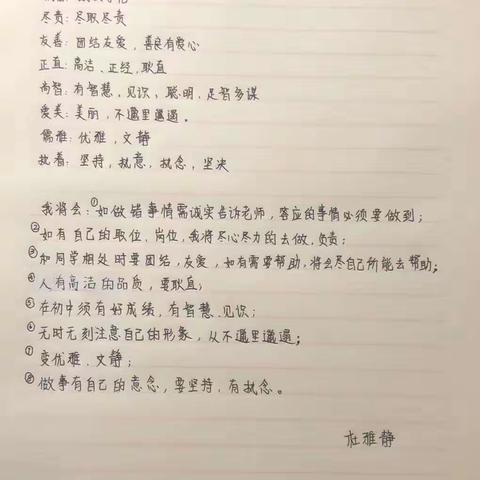 尽责：尽职尽责
友善：团结友爱，善良有爱心
正直：高洁、正经，耿直
尚智：有智慧，见识，聪明，足智多谋
爱美：美丽，不邋里邋遢。
儒雅：优雅，文静
执着：坚持，执意，执念，坚决
我将会：①如做错事情需诚实告诉老师，答应的事情必须要做到；
②如有自己的职位，岗位，我将尽心尽力的去做，负责；
③和同学相处时要团结，友爱，如有需要帮助，将会尽自己所能去帮助；
④人有高洁的品质，要耿直；
⑤在初中须有好成绩，有智慧、见识；
⑥无时无刻注意自己的形象，从不邋里邋遢；
⑦变优雅、文静；
⑧做事有自己的意念，要坚持，有执念。
杜雅静